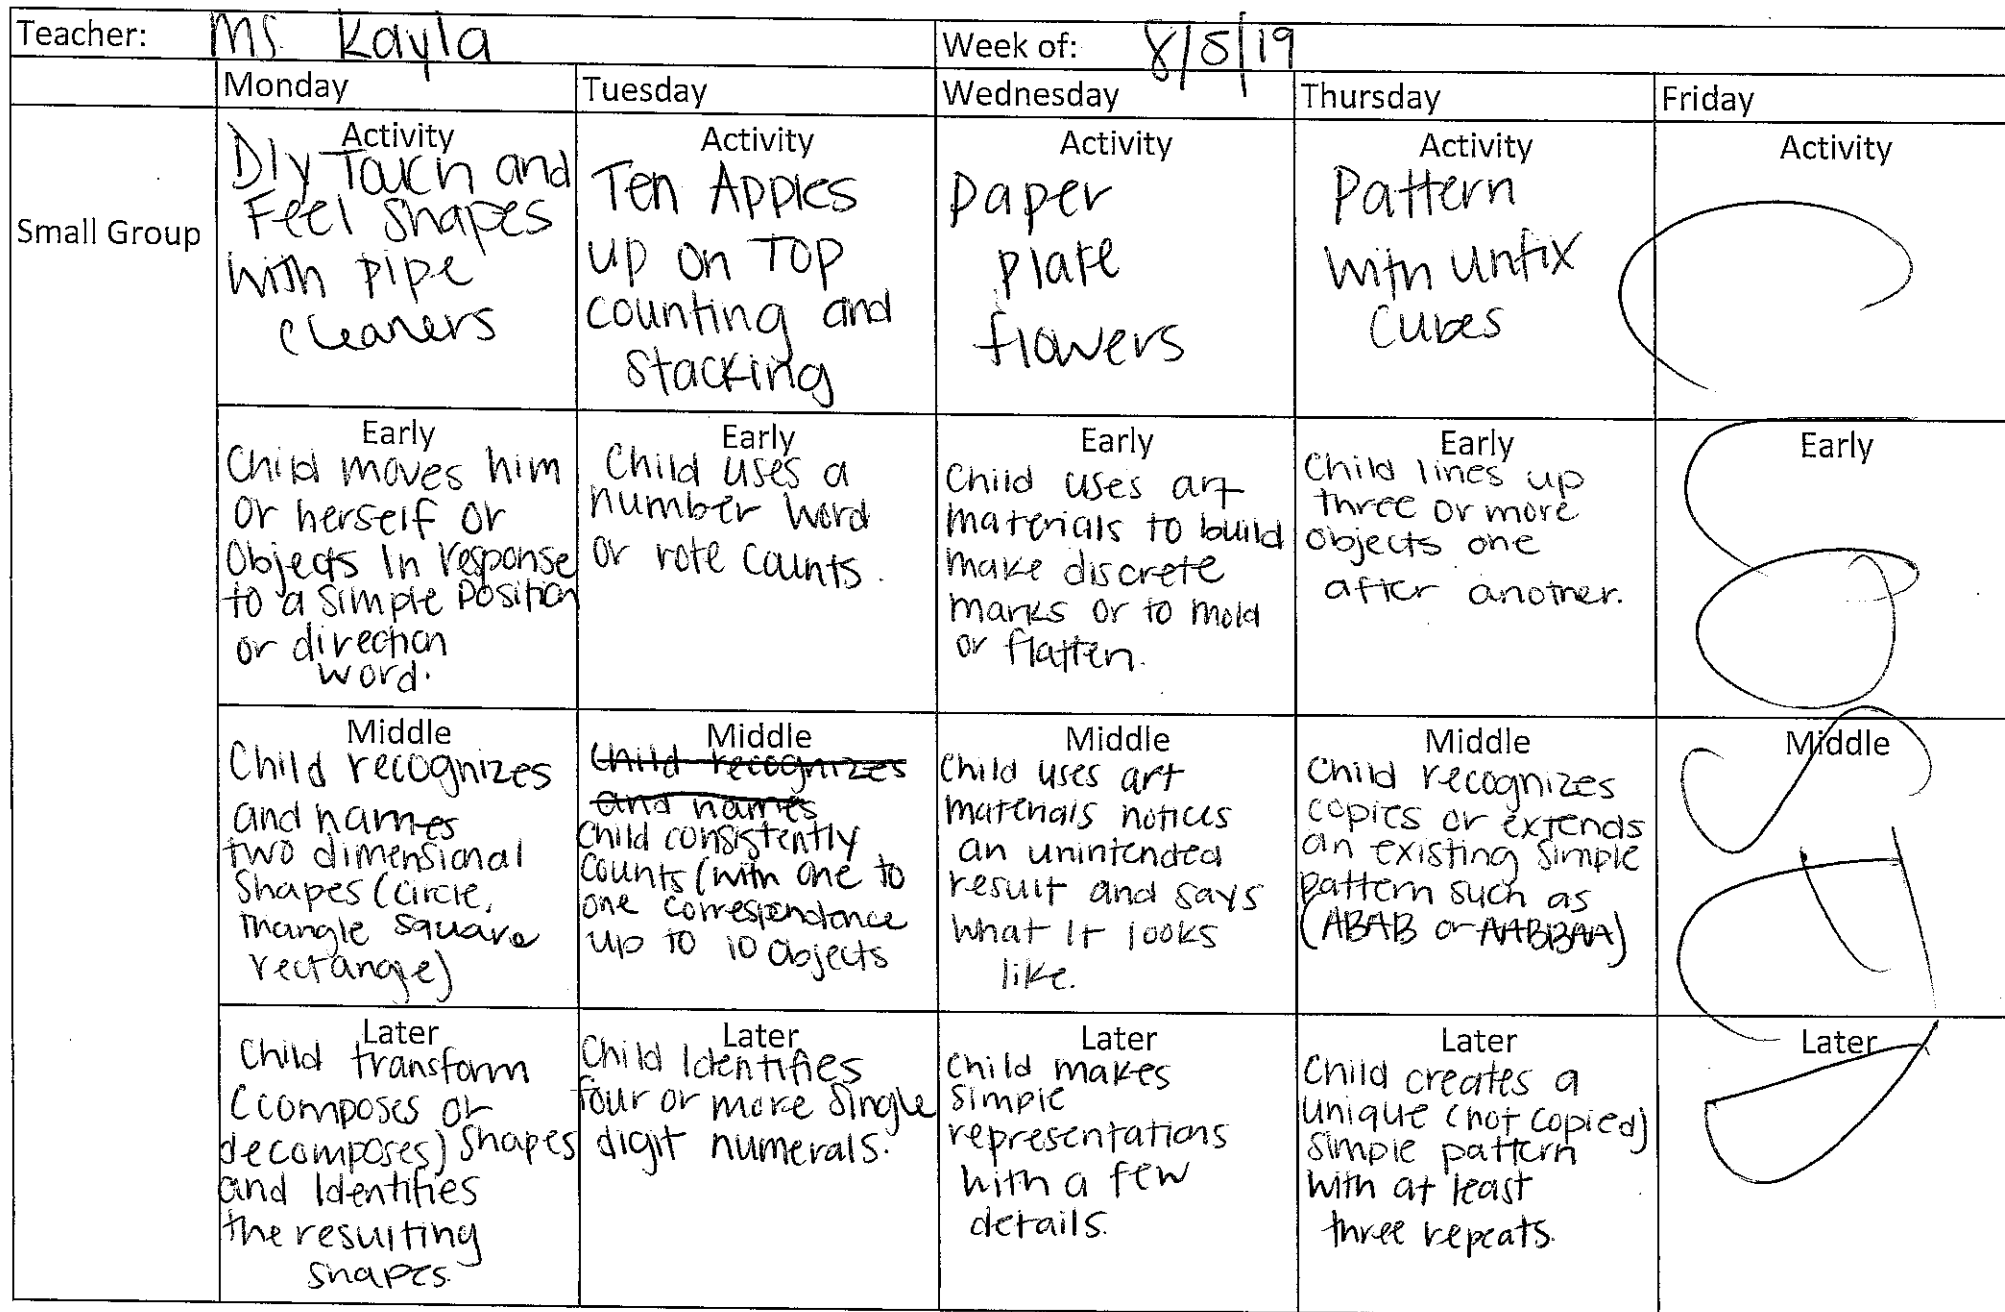 Teacher: Ms. Kayla
Week of: 8/5/19
Monday
Tuesday
Wednesday
Thursday
Friday
Small Group
Activity
DIy Touch and
Feel shapes
with pipe
cleaners
Activity
Ten Apples
up on Top
counting and
stacking
Activity
paper
plate
flowers
Activity
Pattern
with unfix
cubes
Activity
Early
Child moves him
or herself or
objects in response
to a simple position
or direction
word.
Early
Child uses a
number word
or rote counts.
Early
Child uses art
materials to build
make discrete
marks or to mold
or flatten.
Early
Child lines up
three or more
objects one
after another.
Early
Middle
Child recognizes
and names
two dimensional
shapes (circle,
triangle square
rectangle)
Middle
Child recognizes
and names
Child consistently
counts (with one to
one correspondence
up to 10 objects
Middle
Child uses art
materials notices
an unintended
result and says
what it looks
like.
Middle
Child recognizes
copies or extends
an existing simple
pattern such as
(ABAB or AABBAA)
Middle
Later
Child transform
(composes or
decomposes) shapes
and identifies
the resulting
shapes.
Later
Child identifies
four or more single
digit numerals.
Later
Child makes
simple
representations
with a few
details.
Later
Child creates a
unique (not copied)
simple pattern
with at least
three repeats.
Later